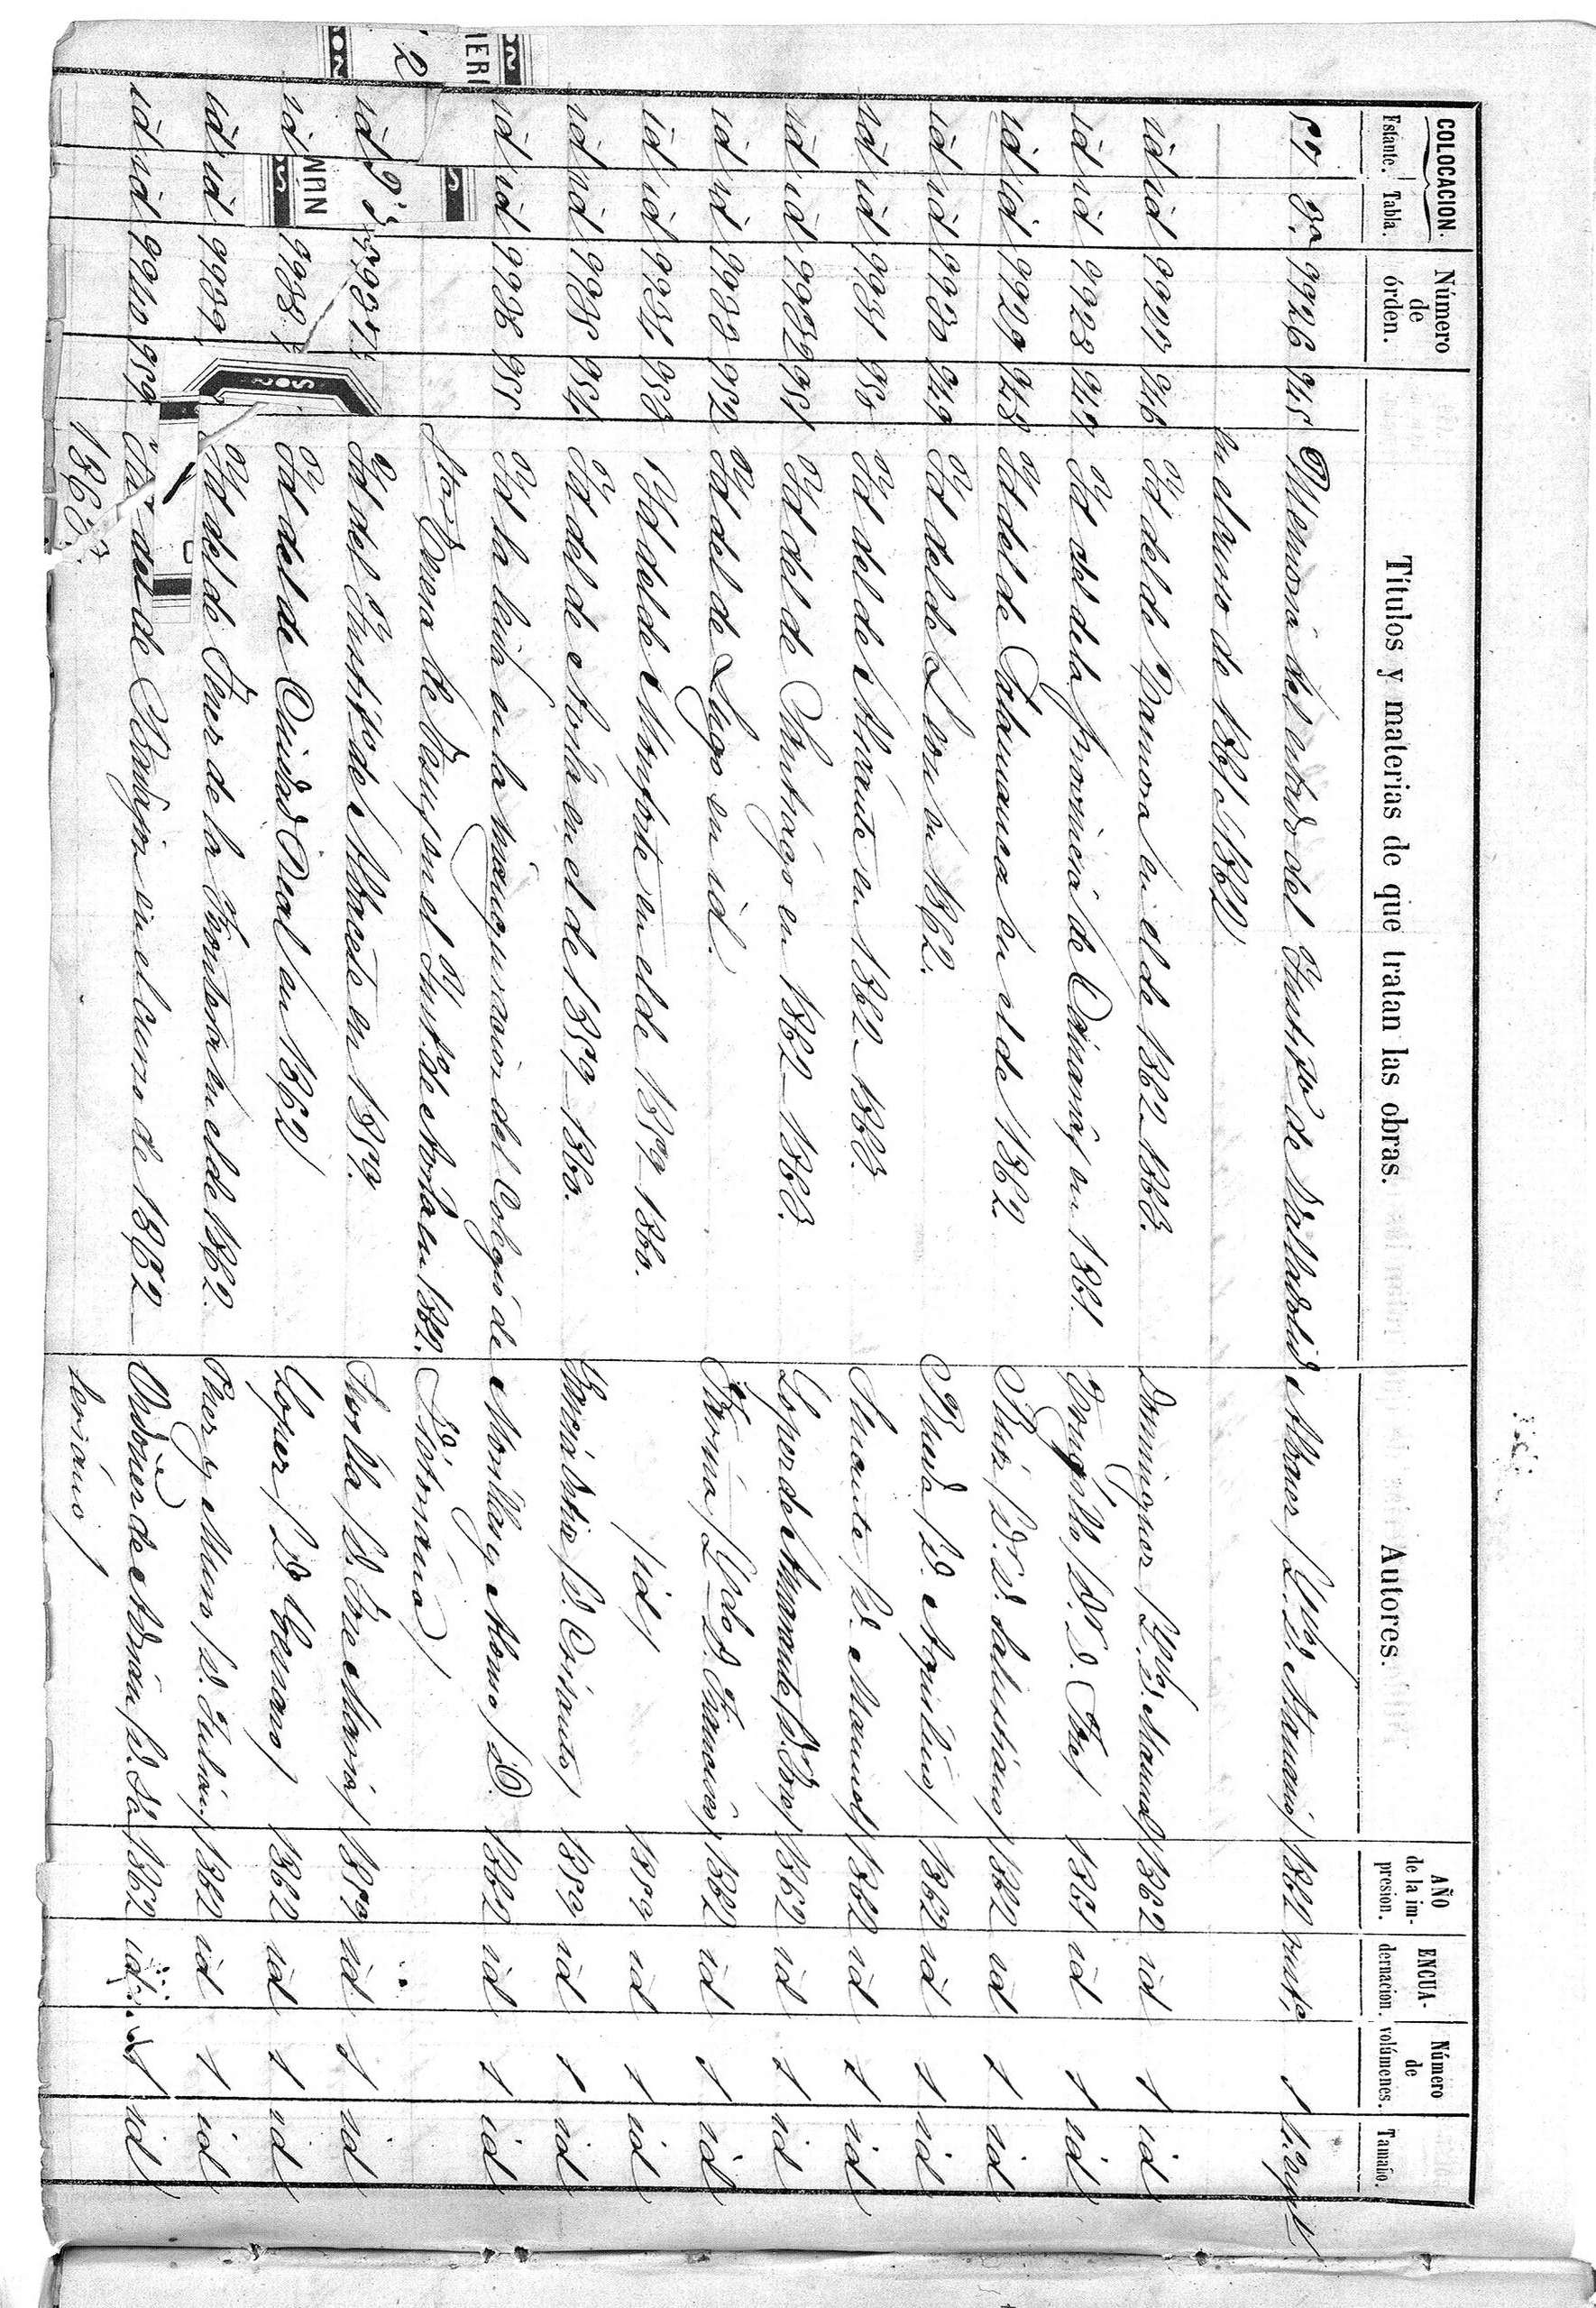 COLOCACION. Número de órden. Títulos y materias de que tratan las obras. Autores. AÑO de la impresion. ENCUADERNACION. Número de volúmenes. Tamaño.
Estante. Tabla.
57 8º 9926 945 Memoria del estado del Instituto de Valladolid Alvarez (Ldo. D. Atanasio) 1862 rústª 1
en el curso de 1861 á 1862
id id 9927 946 Id del de Zamora en el de 1862-1863. Dominguez (Ldo. D. Manuel) 1862 id 1 id
id id 9928 947 Id del de la provincia de en 1861. (Dr. D. José) 1861 id 1 id
id id 9929 948 Id del de Salamanca en el de 1862 Ruiz (Dr. D. Salustiano) 1862 id 1 id
id id 9930 949 Id del de Leon en 1862. Rueda (D. Aquilino) 1862 id 1 id
id id 9931 950 Id del de Alicante en 1862-1863. Senante (D. Manuel) 1862 id 1 id
id id 9932 951 Id del de Santiago en 1862-1863. Lopez de Amarante (D. José) 1862 id 1 id
id id 9933 952 Id del de Lugo en id. (Ldo. D. Francisco) 1862 id 1 id
id id 9934 953 Id del de Monforte en el de 1859-1860. (id) 1859 id 1 id
id id 9935 954 Id del de Soria en el de 1859-1860. (D. Crisanto) 1859 id 1 id
id id 9936 955 Id la leida en la inauguracion del Colegio de Monllas y Alonso (D. 1862 id 1 id
en el Inst. de Soria en 1862.
id 9937 Id del Instituto de Albacete en 1859. Sevilla (D. José Maria) 1859 id 1 id
id 9938 Id del de Ciudad Real en 1862 Lopez (D. Genaro) 1862 id 1 id
id id 9939 Id del de Jerez de la Frontera en el de 1862. Perez y Muro (D. Julian) 1862 id 1 id
id id 9940 959 Id del de en el curso de 1862- Ordoñez de Adrian (D. Va- 1862 id 1 id
1863. leriano)